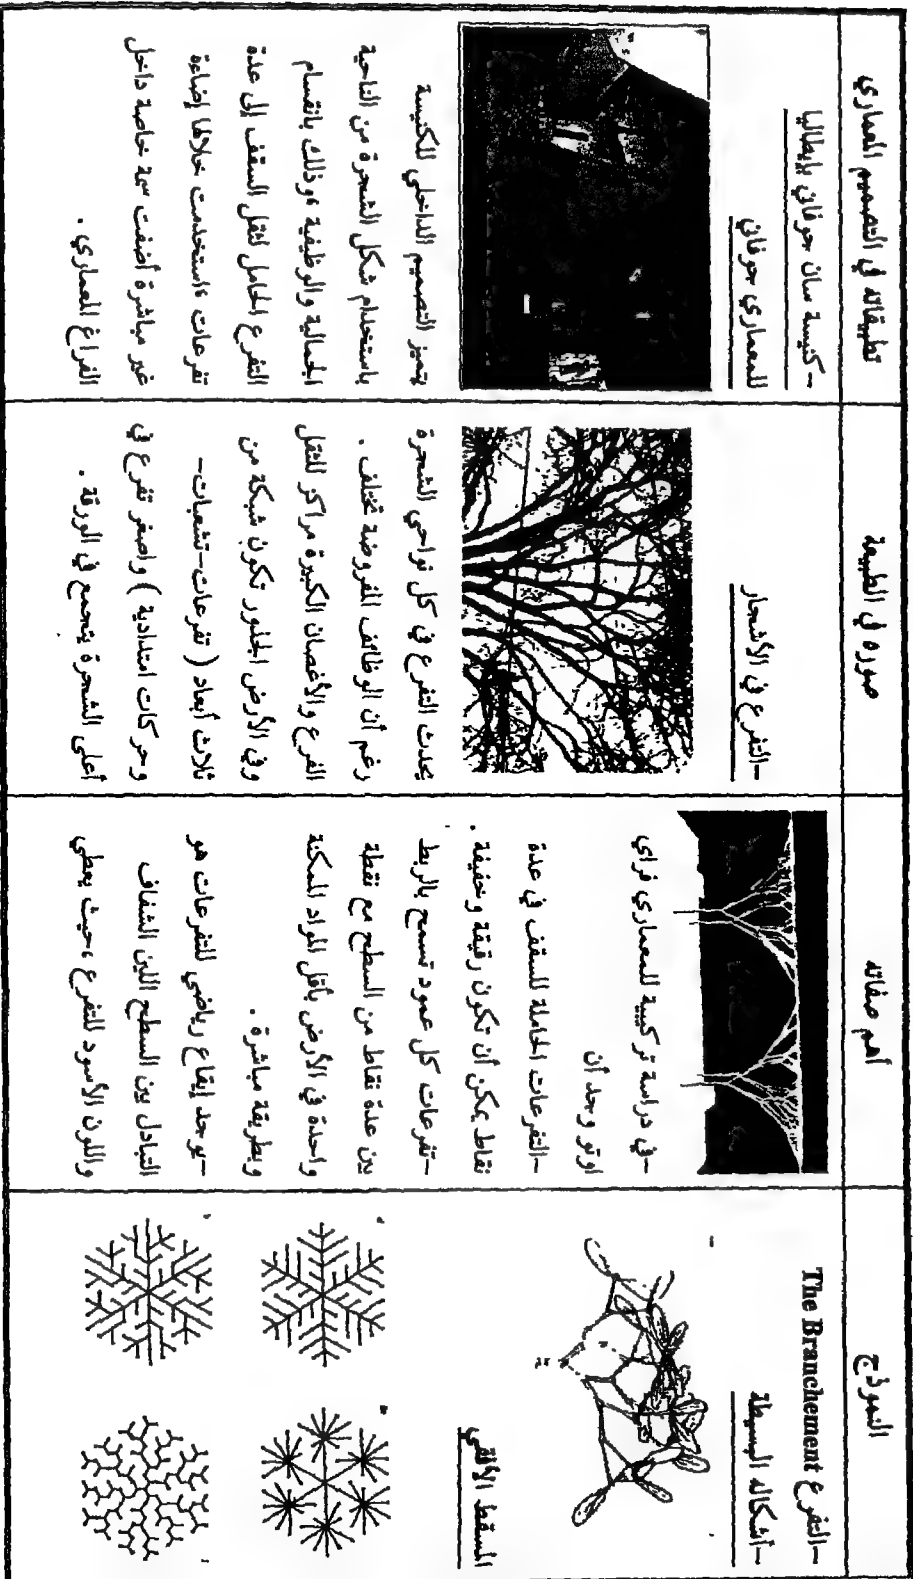 النموذج
أهم صفاته
صوره في الطبيعة
تطبيقاته في التصميم المعماري
–التفرع The Branchement
–أشكاله البسيطة
المسقط الأفقي
–في دراسة تركيبية للمعماري فراي
اوتو وجد أن
–التفرعات الحاملة للسقف في عدة
نقاط يمكن أن تكون رقيقة وخفيفة .
–تفرعات كل عمود تسمح بالربط
بين عدة نقاط من السطح مع نقطة
واحدة في الأرض بأقل المواد الممكنة
وبطريقة مباشرة .
–يوجد إيقاع رياضي للتفرعات هو
التبادل بين السطح اللين الشفاف
واللون الأسود للتفرع ،حيث يعطي
–التفرع في الأشجار
يحدث التفرع في كل نواحي الشجرة
رغم أن الوظائف المفروضة تختلف .
الفرع والأغصان الكبيرة مراكز للثقل
وفي الأرض الجذور تكون شبكة من
ثلاث أبعاد ( تفرعات–تشعبات–
وحركات امتدادية ) واصغر تفرع في
أعلى الشجرة يتجمع في الورقة .
–كنيسة سان جوفاني بإيطاليا
للمعماري جوفاني
يتميز التصميم الداخلي للكنيسة
باستخدام شكل الشجرة من الناحية
الجمالية والوظيفية ،وذلك بانقسام
التفرع الحامل لثقل السقف إلى عدة
تفرعات ،استخدمت خلالها إضاءة
غير مباشرة أضفت سمة خاصة داخل
الفراغ المعماري .